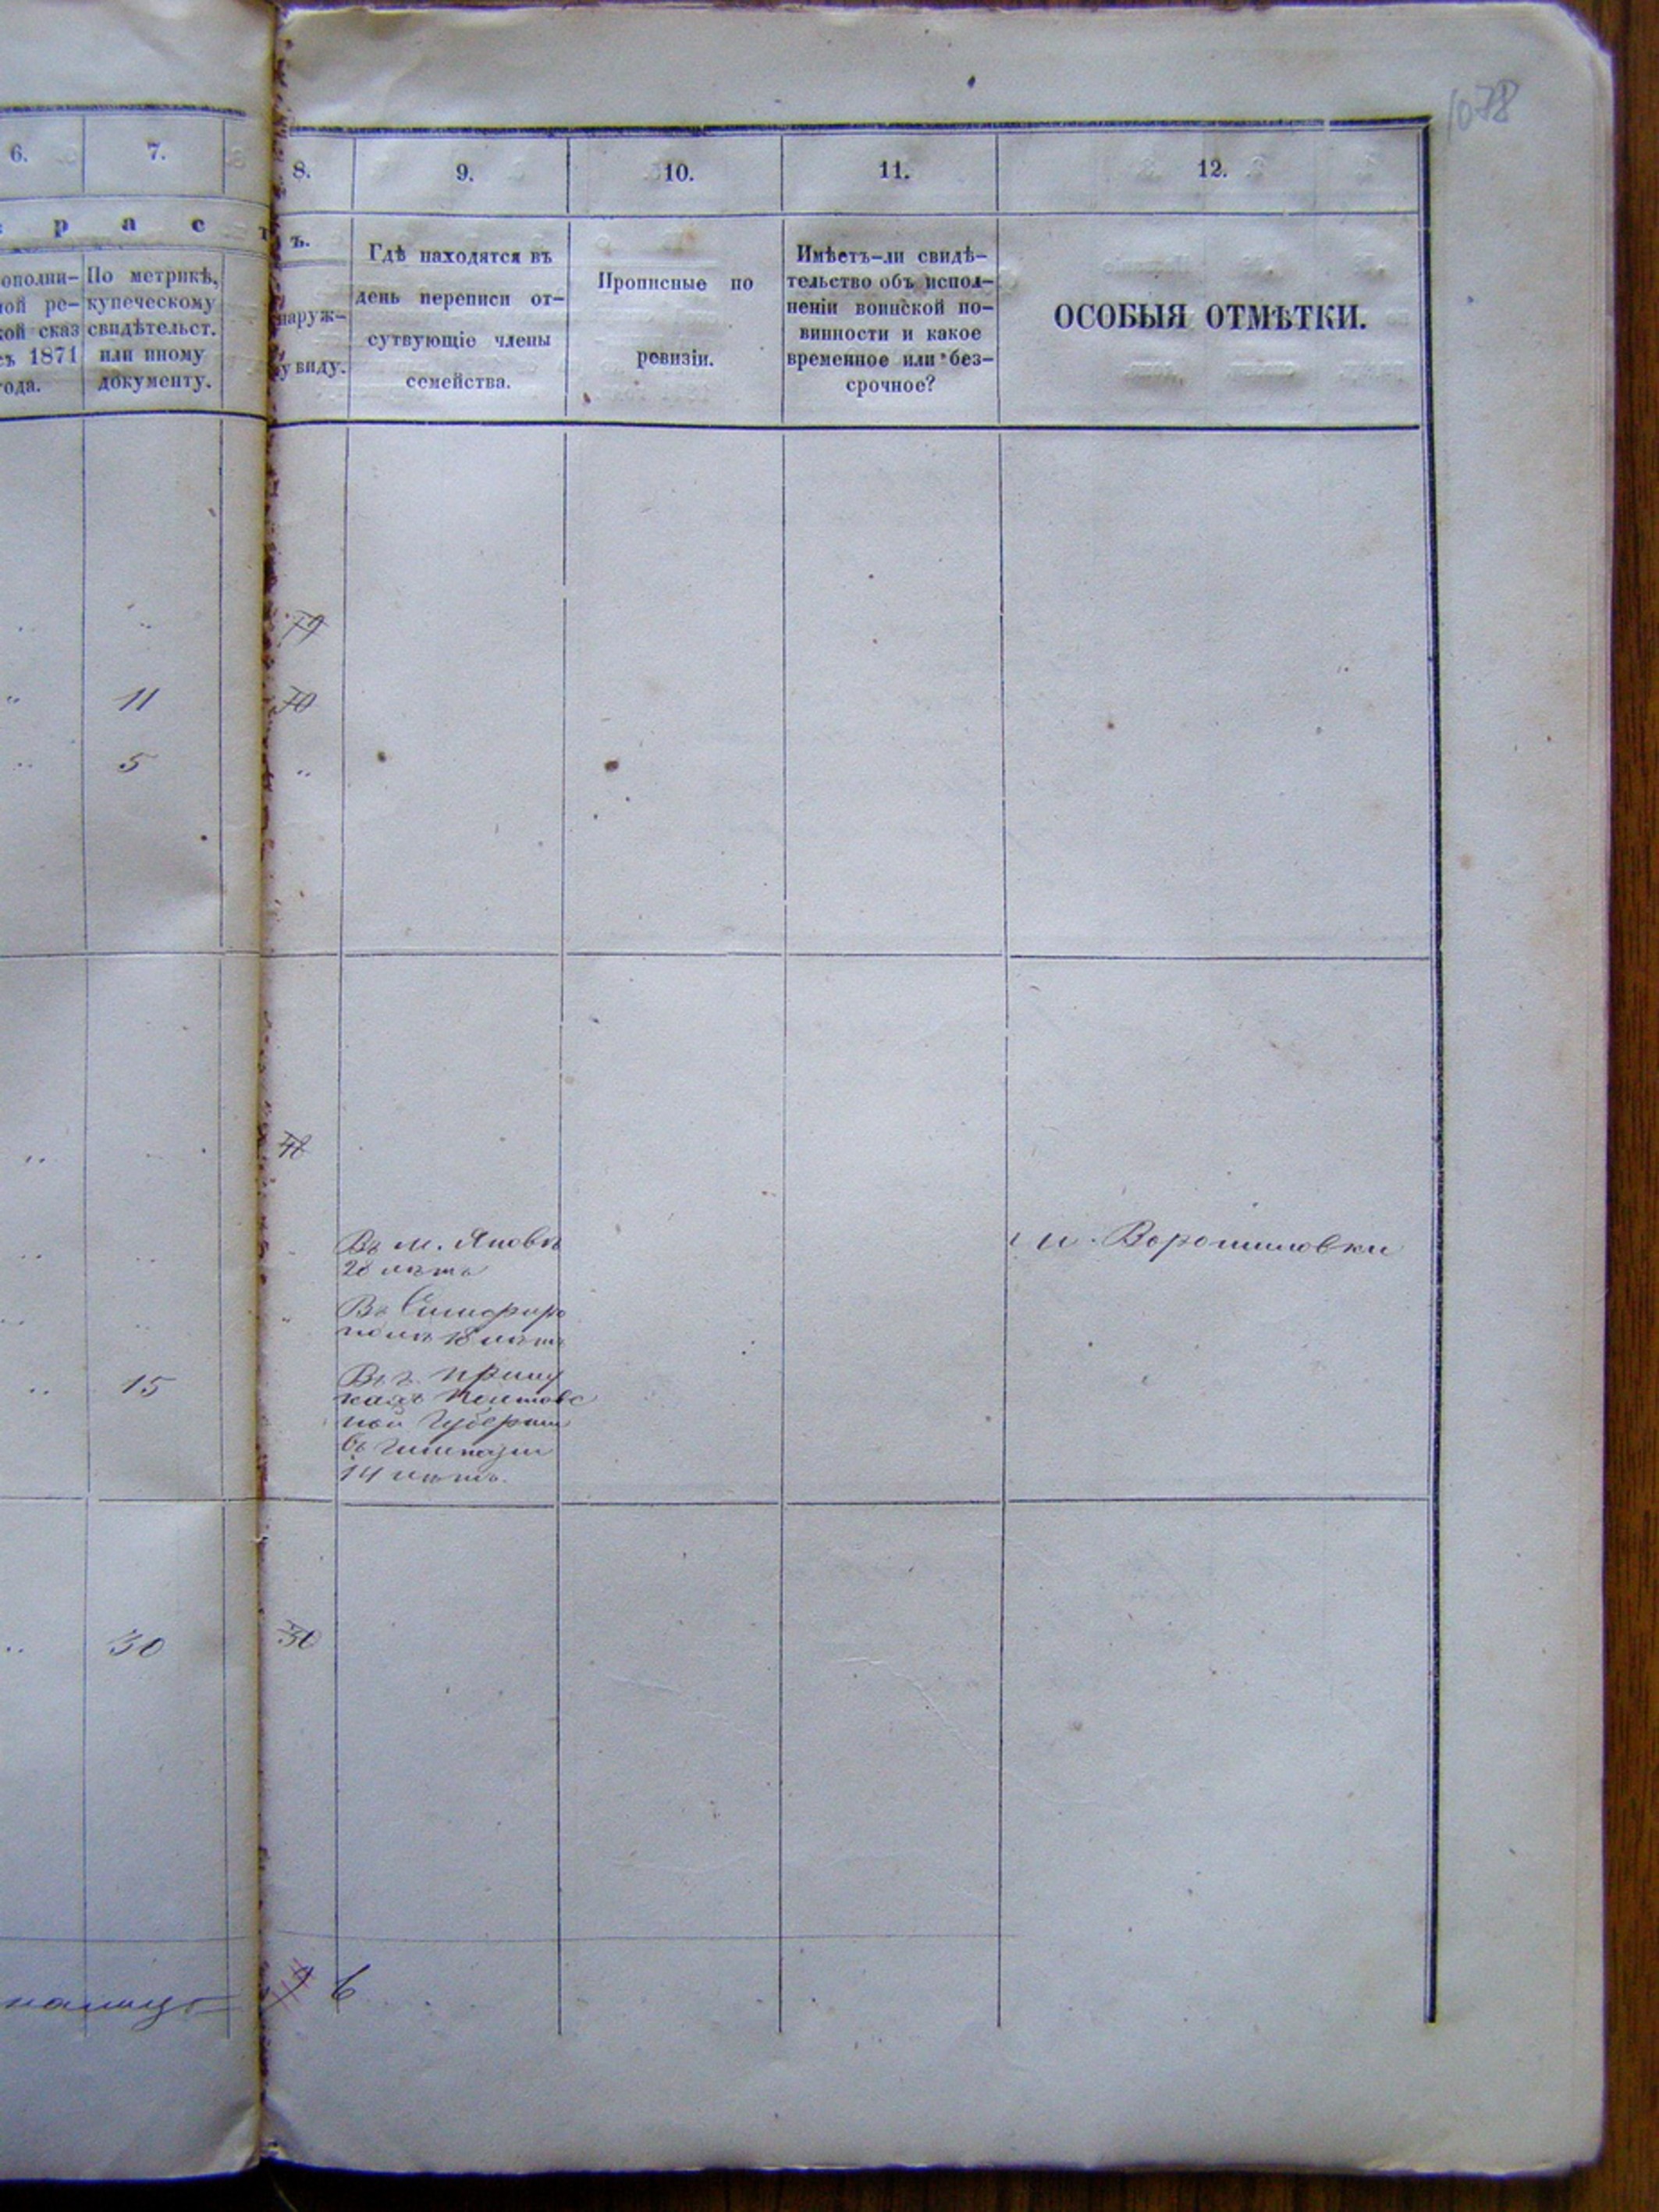 1078
6.
7.
8.
9.
10.
11.
12.
р а с т
ъ.
ополни-
ной ре-
кой сказ
съ 1871
года.
По метрикѣ,
купеческому
свидѣтельст.
или иному
документу.
наруж-
у виду.
Гдѣ находятся въ
день переписи от-
сутвующіе члены
семейства.
Прописные по
ревизіи.
Имѣетъ-ли свидѣ-
тельство объ испол-
неніи воинской по-
винности и какое
временное или без-
срочное?
ОСОБЫЯ ОТМѢТКИ.
79
11
70
5
48
Въ м. Яновѣ
20 лѣтъ
м. Ворошиловки
Въ Симферо
полѣ 18 лѣтъ
15
Въ г. Прилу
кахъ Полтавс
кой Губерніи
въ гимназіи
14 лѣтъ.
30
30
6